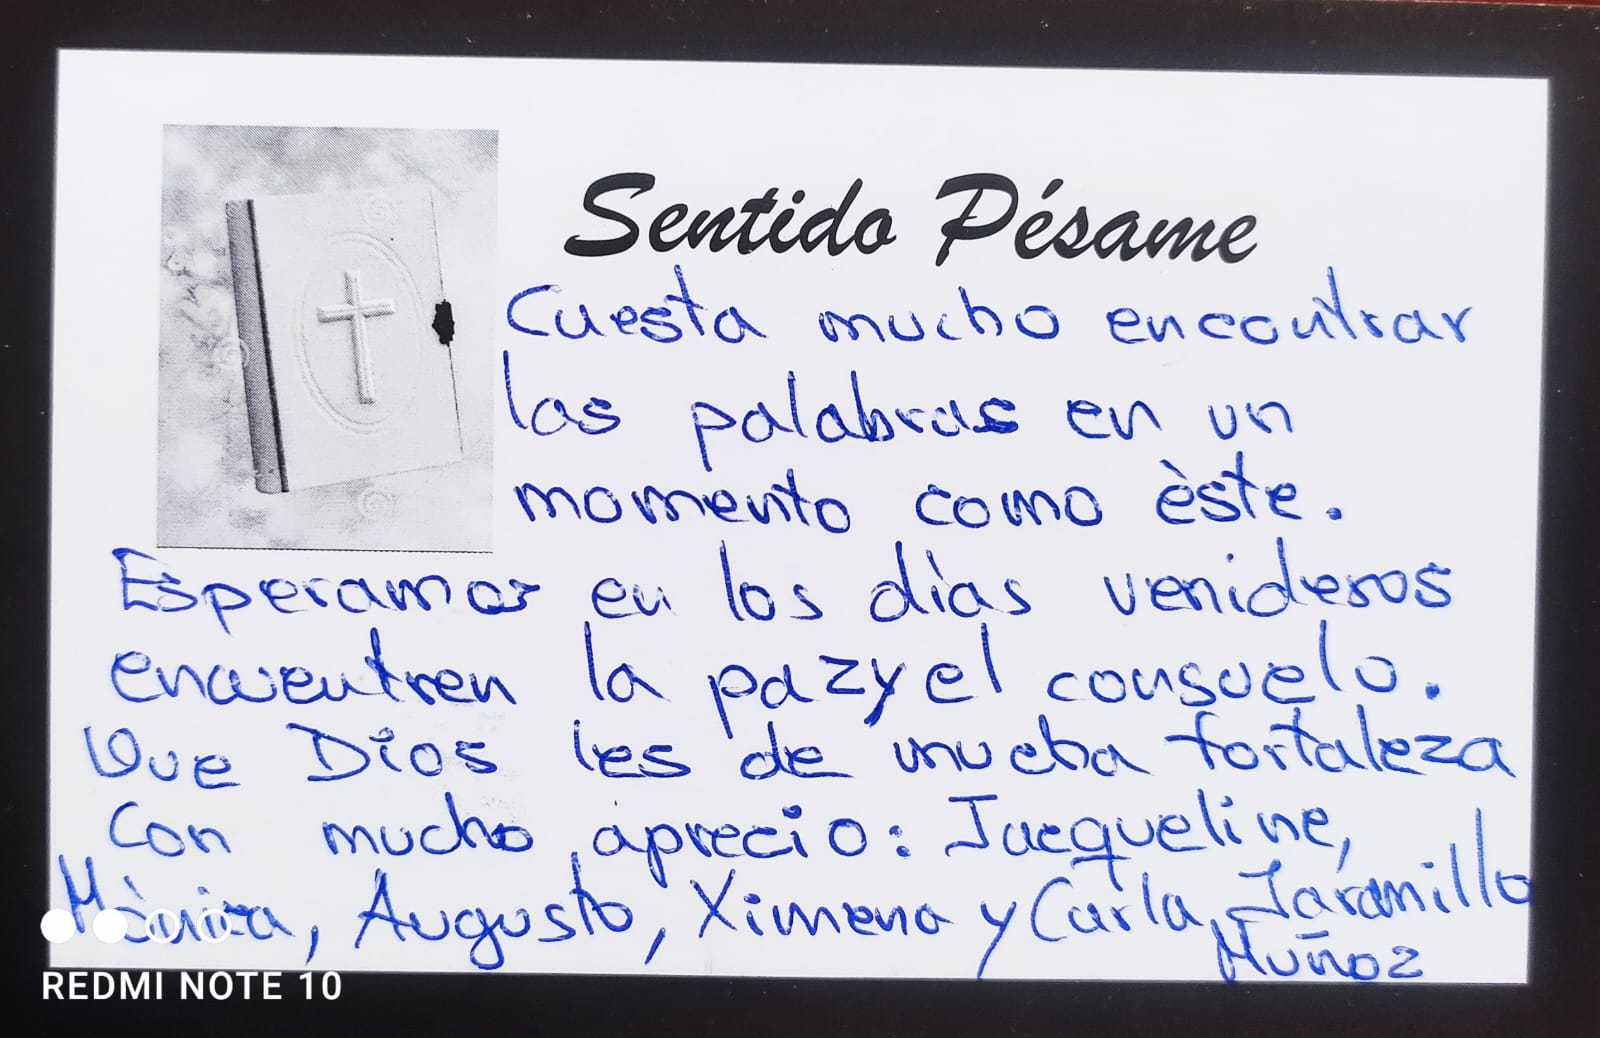 Sentido Pésame
Cuesta mucho encontrar
las palabras en un
momento como èste.
Esperamos en los dìas venideros
encuentren la paz y el consuelo.
Que Dios les de mucha fortaleza
Con mucho aprecio: Jacqueline,
Mònica, Augusto, Ximena y Carla Jaramillo
Muñoz
REDMI NOTE 10